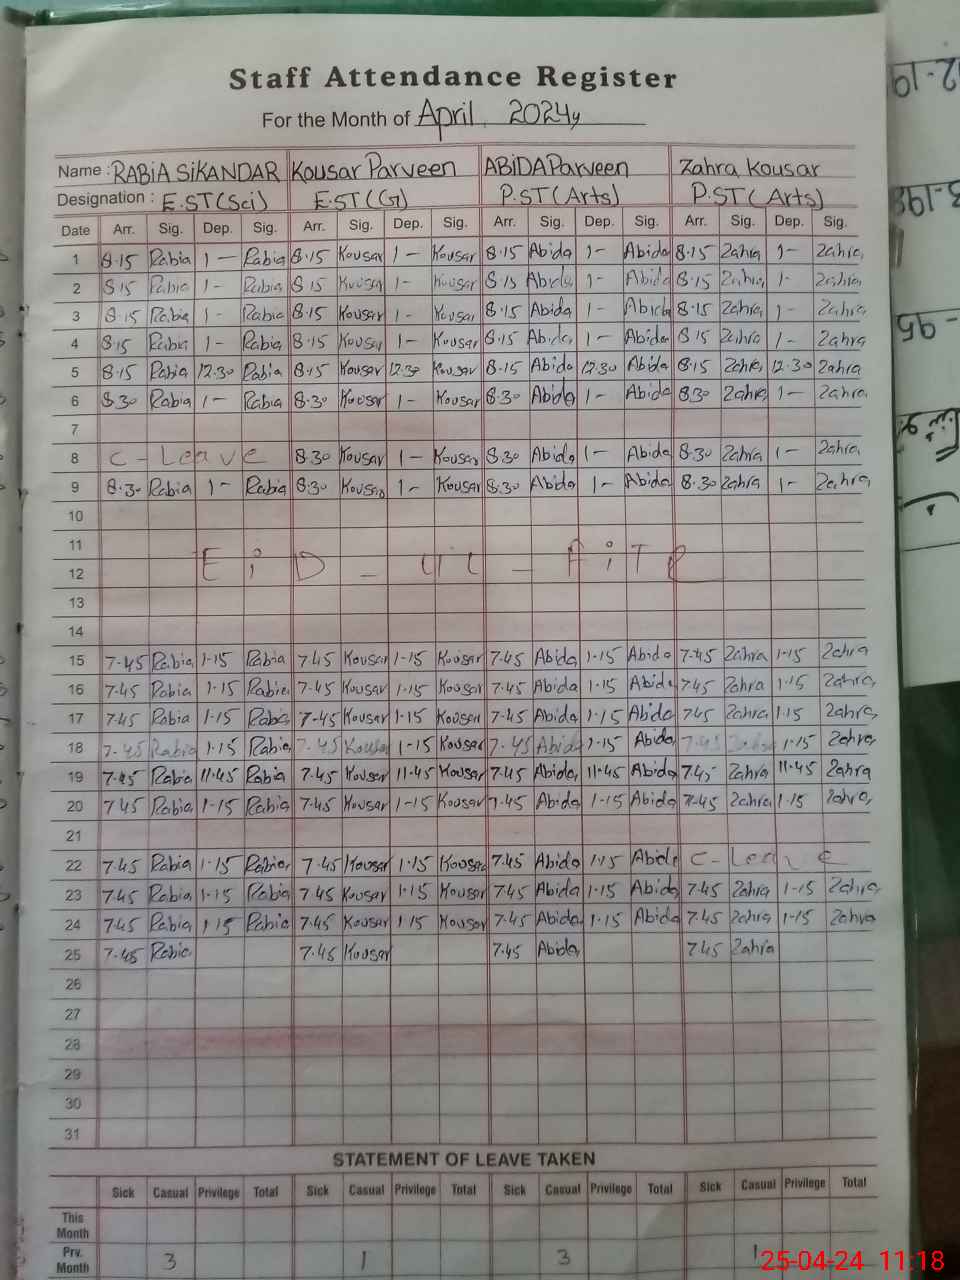 Staff Attendance Register
For the Month of April 2024
Name : RABiA SiKANDAR Kousar Parveen ABiDA Parveen Zahra Kousar
Designation : E.ST(Sci) E.ST(G) P.ST(Arts) P.ST(Arts)
Date Arr. Sig. Dep. Sig. Arr. Sig. Dep. Sig. Arr. Sig. Dep. Sig. Arr. Sig. Dep. Sig.
1 8.15 Rabia 1- Rabia 8.15 Kousar 1- Kousar 8.15 Abida 1- Abida 8.15 Zahra 1- Zahra
2 8.15 Rabia 1- Rabia 8.15 Kousar 1- Kousar 8.15 Abida 1- Abida 8.15 Zahra 1- Zahra
3 8.15 Rabia 1- Rabia 8.15 Kousar 1- Kousar 8.15 Abida 1- Abida 8.15 Zahra 1- Zahra
4 8.15 Rabia 1- Rabia 8.15 Kousar 1- Kousar 8.15 Abida 1- Abida 8.15 Zahra 1- Zahra
5 8.15 Rabia 12.30 Rabia 8.15 Kousar 12.30 Kousar 8.15 Abida 12.30 Abida 8.15 Zahra 12.30 Zahra
6 8.30 Rabia 1- Rabia 8.30 Kousar 1- Kousar 8.30 Abida 1- Abida 8.30 Zahra 1- Zahra
7
8 C-Leave 8.30 Kousar 1- Kousar 8.30 Abida 1- Abida 8.30 Zahra 1- Zahra
9 8.30 Rabia 1- Rabia 8.30 Kousar 1- Kousar 8.30 Abida 1- Abida 8.30 Zahra 1- Zahra
10
11
12 EiD - Ul - FiTR
13
14
15 7.45 Rabia 1.15 Rabia 7.45 Kousar 1.15 Kousar 7.45 Abida 1.15 Abida 7.45 Zahra 1.15 Zahra
16 7.45 Rabia 1.15 Rabia 7.45 Kousar 1.15 Kousar 7.45 Abida 1.15 Abida 7.45 Zahra 1.15 Zahra
17 7.45 Rabia 1.15 Rabia 7.45 Kousar 1.15 Kousar 7.45 Abida 1.15 Abida 7.45 Zahra 1.15 Zahra
18 7.45 Rabia 1.15 Rabia 7.45 Kousar 1-15 Kousar 7.45 Abida 1.15 Abida 7.45 Zahra 1.15 Zahra
19 7.45 Rabia 11.45 Rabia 7.45 Kousar 11.45 Kousar 7.45 Abida 11.45 Abida 7.45 Zahra 11.45 Zahra
20 7.45 Rabia 1-15 Rabia 7.45 Kousar 1-15 Kousar 7.45 Abida 1-15 Abida 7.45 Zahra 1.15 Zahra
21
22 7.45 Rabia 1.15 Rabia 7.45 Kousar 1.15 Kousar 7.45 Abida 1.15 Abida C-Leave
23 7.45 Rabia 1.15 Rabia 7.45 Kousar 1.15 Kousar 7.45 Abida 1.15 Abida 7.45 Zahra 1-15 Zahra
24 7.45 Rabia 1.15 Rabia 7.45 Kousar 1.15 Kousar 7.45 Abida 1.15 Abida 7.45 Zahra 1-15 Zahra
25 7.45 Rabia 7.45 Kousar 7.45 Abida 7.45 Zahra
26
27
28
29
30
31
STATEMENT OF LEAVE TAKEN
Sick Casual Privilege Total Sick Casual Privilege Total Sick Casual Privilege Total Sick Casual Privilege Total
This Month
Prv. Month 3 1 3 1
25-04-24 11:18